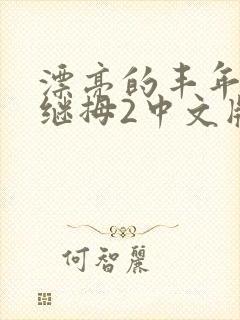 漂亮的丰年
继拇2中文版
何智麗